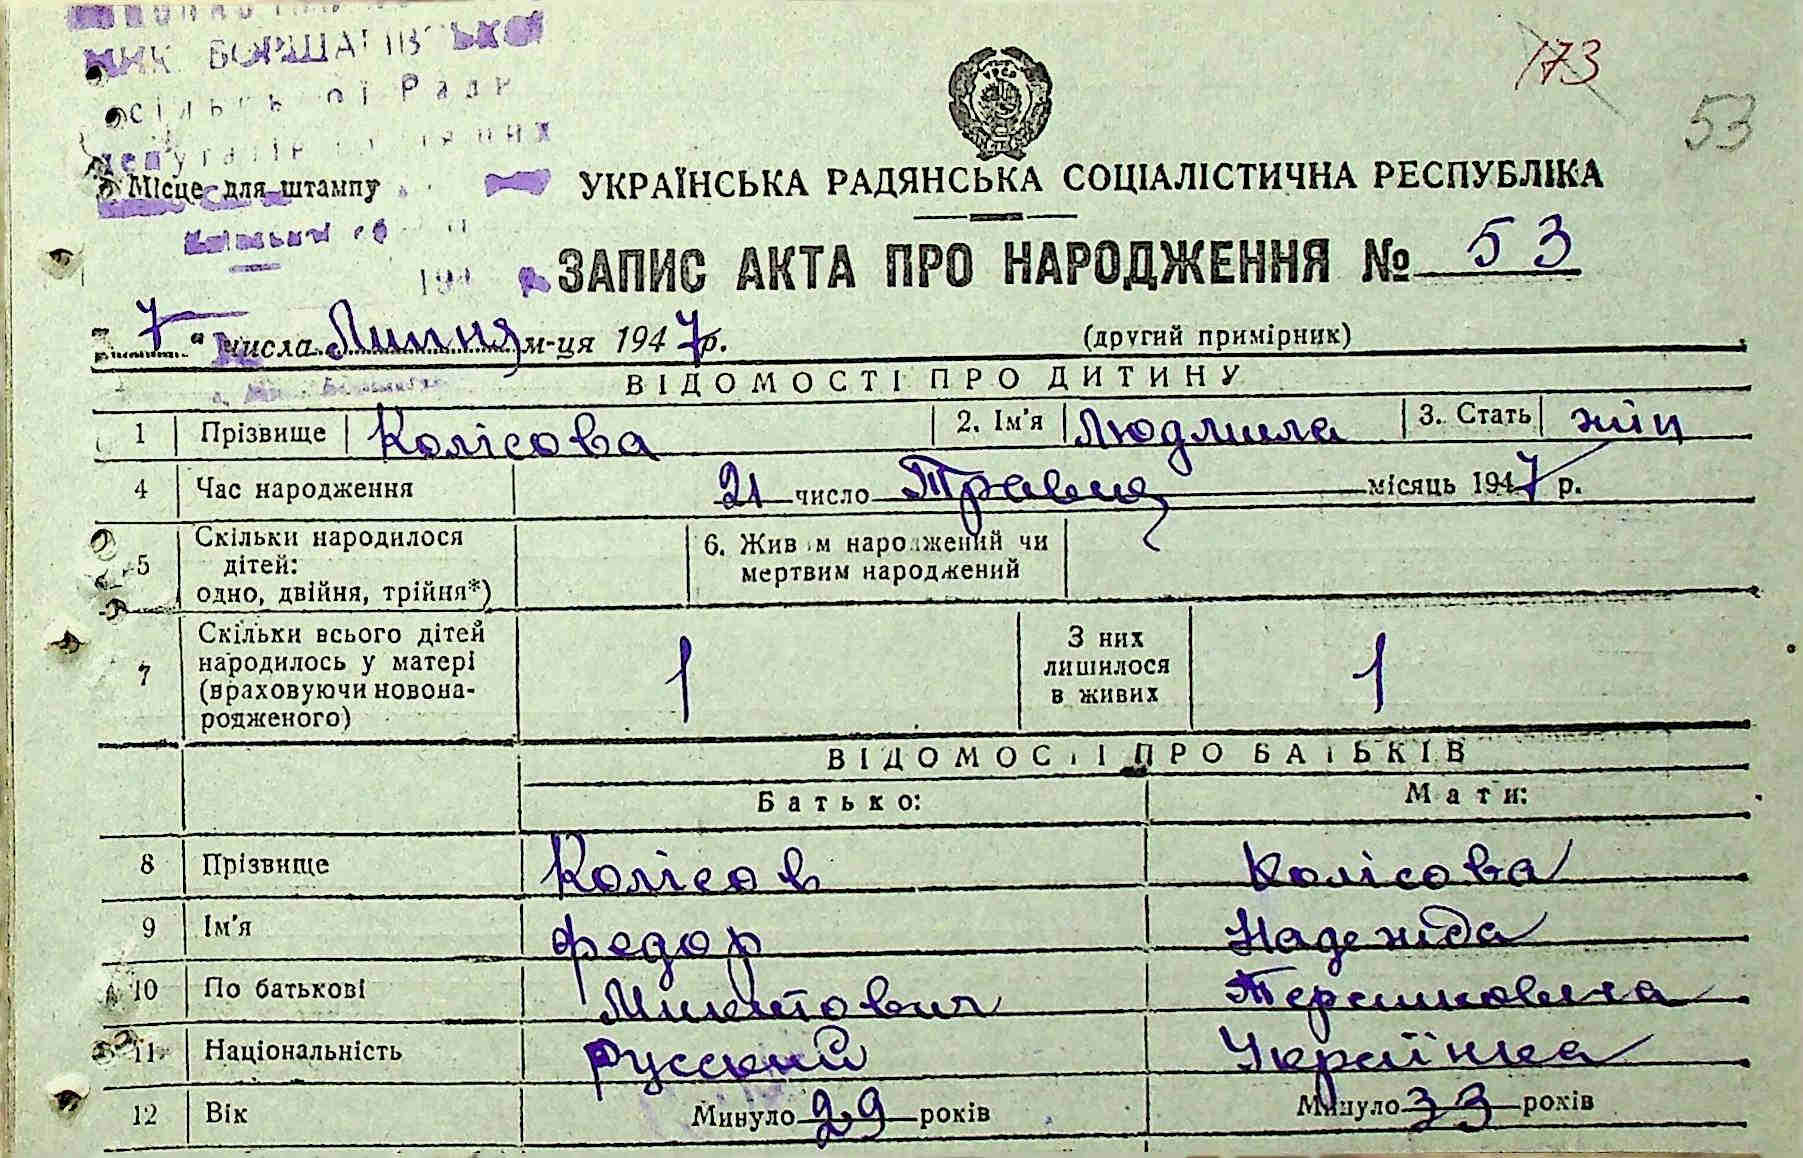 БОРЩАГІВСЬКОЇ
сільської Ради
депутатів
173
53
Місце для штампу
УКРАЇНСЬКА РАДЯНСЬКА СОЦІАЛІСТИЧНА РЕСПУБЛІКА
ЗАПИС АКТА ПРО НАРОДЖЕННЯ № 53
„7“ числа Липня м-ця 1947 р. (другий примірник)
ВІДОМОСТІ ПРО ДИТИНУ
1 Прізвище Колісова 2. Ім'я Людмила 3. Стать жін
4 Час народження 21 число Травня місяць 1947 р.
5 Скільки народилося дітей: одно, двійня, трійня*)
6. Живим народжений чи мертвим народжений
7 Скільки всього дітей народилось у матері (враховуючи новонародженого) 1 З них лишилося в живих 1
ВІДОМОСТІ ПРО БАТЬКІВ
Батько: Мати:
8 Прізвище Колісов Колісова
9 Ім'я Федор Надежда
10 По батькові Терешковна
11 Національність Русский Українка
12 Вік Минуло 29 років Минуло 33 років